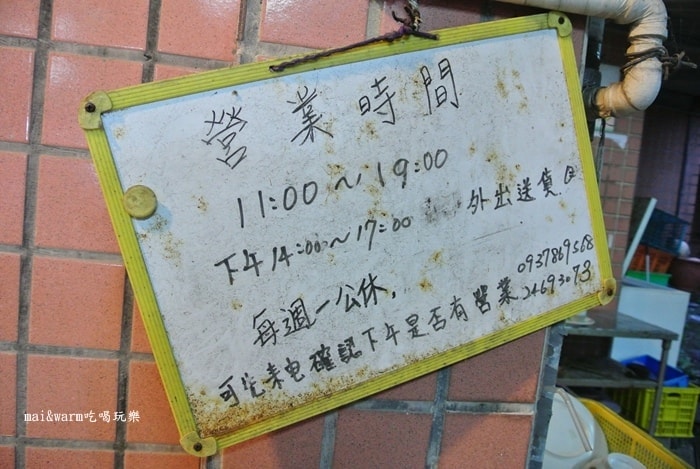 營業時間
11:00～19:00
下午14:00～17:00 外出送貨
每週一公休,
可先來電確認下午是否有營業
0937869568
24693073
mai&warm吃喝玩樂